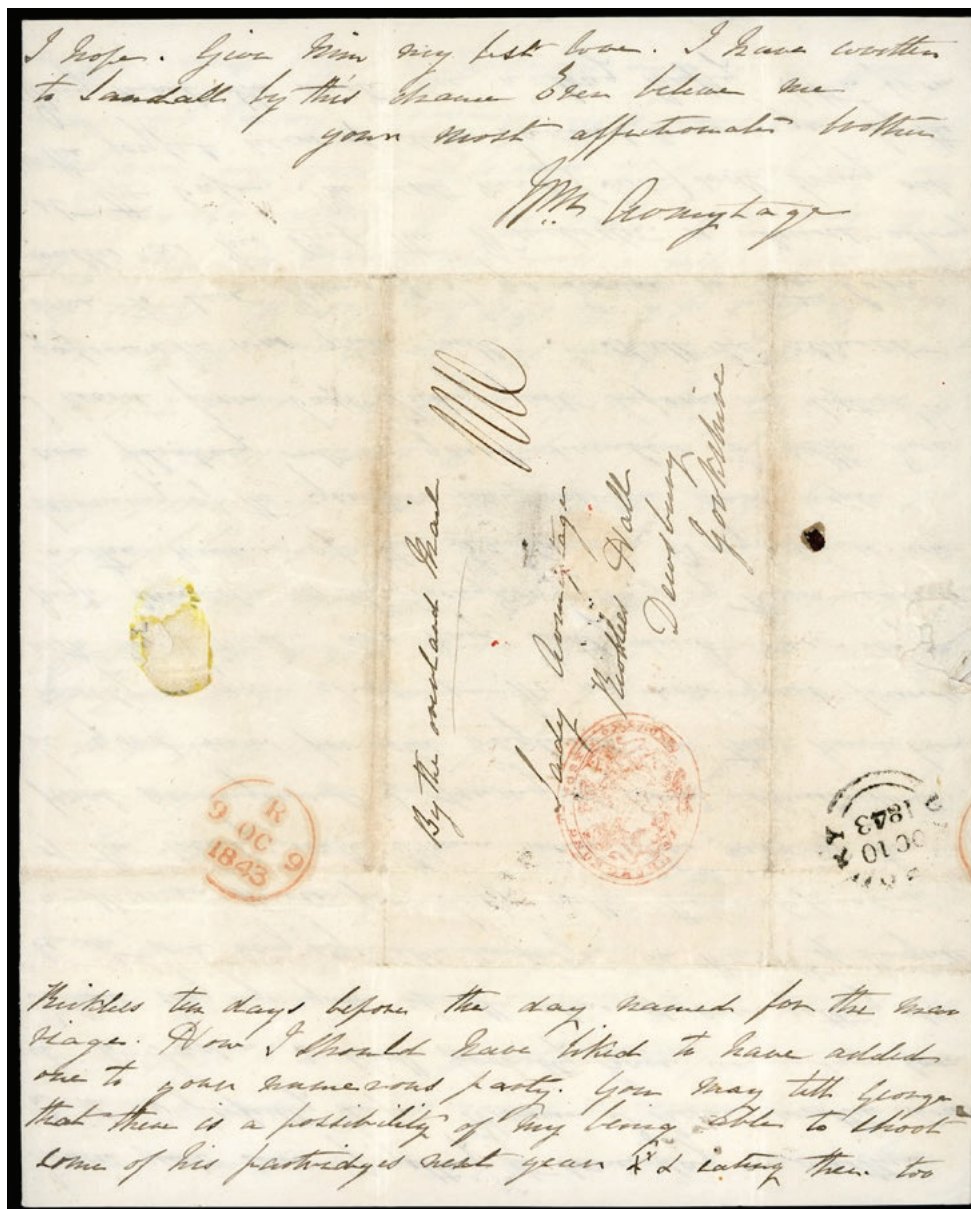 I hope. Give him my best love. I have written
to Sandall by this chance Ever believe me
your most affectionate brother
Wm Armytage
By the overland Mail
Lady Armytage
Kirklees Hall
Dewsbury
Yorkshire
R
9 OC 9
1843
OC 10
1843
Kirklees ten days before the day named for the mar
riage. How I should have liked to have added
one to your numerous party. You may tell George
that there is a possibility of my being able to shoot
some of his partridges next year & eating them too